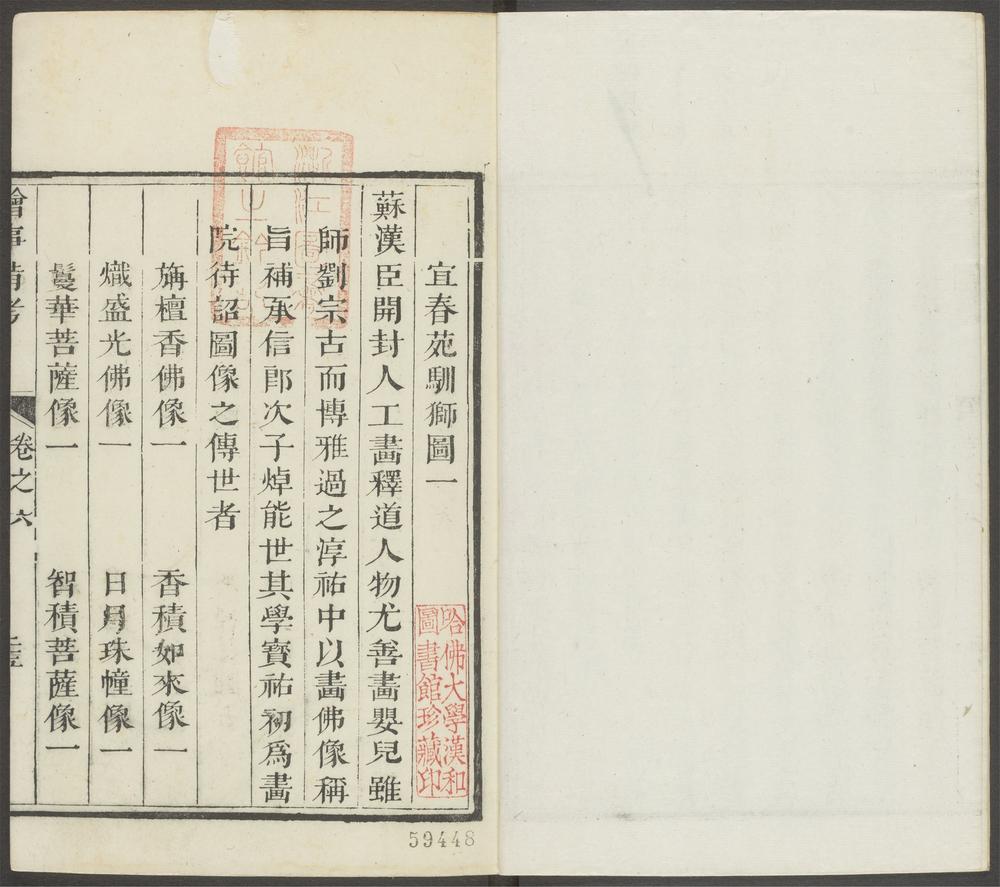 宜春苑馴獅圖一
蘇漢臣開封人工畫釋道人物尤善畫嬰兒雖
師劉宗古而博雅過之淳祐中以畫佛像稱
旨補承信郎次子焯能世其學寶祐初爲畫
院待詔圖像之傳世者
旃檀香佛像一　香積如來像一
熾盛光佛像一　日月珠幢像一
鬘華菩薩像一　智積菩薩像一
繪事備考
卷之六
哈佛大學漢和
圖書館珍藏印
59448